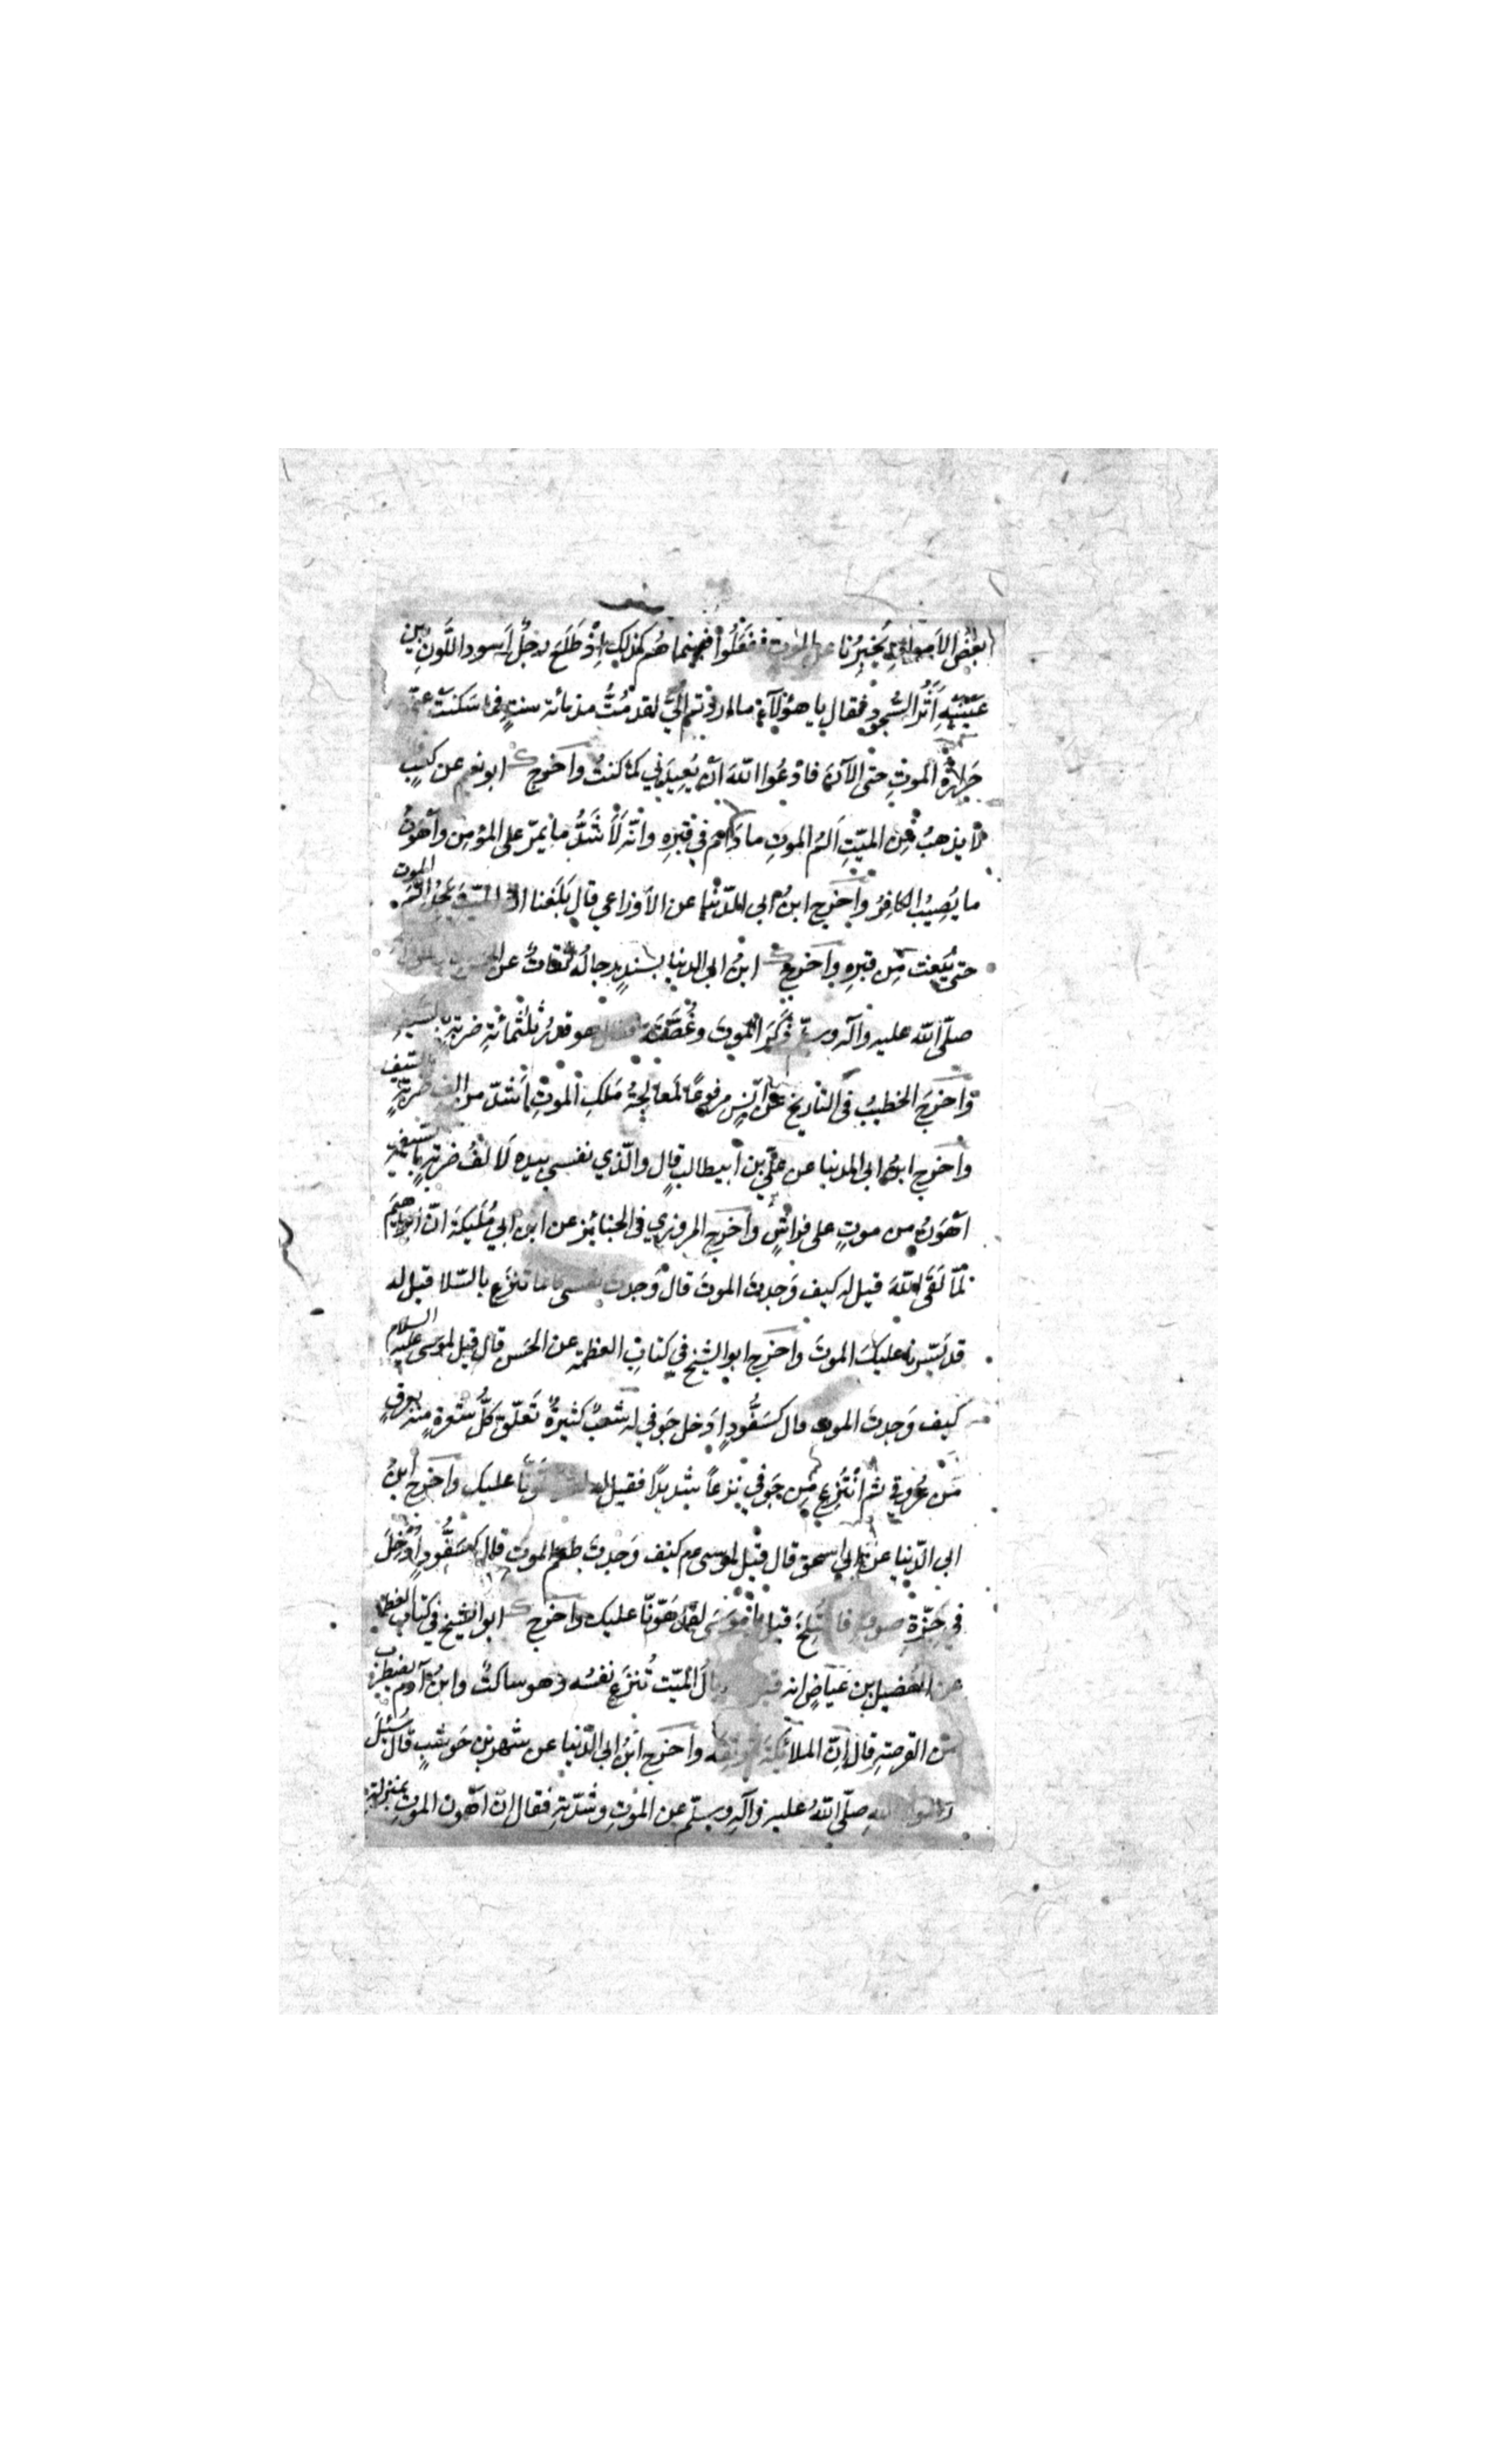 بعضُ الاَمواتِ يُخبِرُنا عن الموت ففَعَلُوا فبينما هُم كذلك اِذْ طَلَعَ رجلٌ اَسود اللَّونِ بين
عَيْنَيْهِ اَثَرُ السُّجودِ فقال يا هؤلاءِ ما اردتم اِليَّ لقد مُتُّ منذ مائة سنةٍ فما سَكنتْ عنّي
حَرارةُ الموتِ حتى الآنَ فادعُوا اللهَ اَنْ يُعِيدَني كما كنتُ واَخرج ابو نعيم عن كعبٍ
لا يذهبُ عن الميّتِ اَلمُ الموتِ ما دام في قبرِهِ وانّه لَاَشَدُّ ما يمرّ على المؤمن واَهْوَنُ
ما يُصِيبُ الكافِرَ واَخرج ابنُ ابي الدّنيا عن الاَوزاعي قال بَلَغنا انّ الميّت يَجِدُ اَلَمَ الموت
حتى يُبعث مِن قبرِهِ واَخرج ابنُ ابي الدنيا بسندٍ رجالُه ثِقاتٌ عن
صلّى الله عليه وآله وسلّم ذَكَرَ الموتَ وغُصَّتَه فقال هو قدرُ ثلثمائةِ ضربةٍ بالسَّيفِ
واَخرجَ الخطيبُ في التاريخ عن اَنَسٍ مرفوعًا لَمعالجةُ مَلَكِ الموتِ اَشدّ من الف ضربةٍ بالسّيف
واَخرج ابنُ ابي الدنيا عن عليّ بن ابيطالب قال والّذي نفسي بيده لَاَلفُ ضربةٍ بالسَّيفِ
اَهْوَنُ من موتٍ على فراشٍ واَخرج المروزي في الجنائز عن ابن ابي مُلَيكَةَ انّ اِبراهيمَ
لمّا لَقَى اللهَ قيل له كيف وَجدتَ الموتَ قال وَجدت نفسي كانما تنزع بالسّلا قيل له
قد يَسّرنا عليكَ الموتَ واَخرج ابو الشيخ في كتاب العظمة عن الحَسن قال قيل لموسى عليه السلام
كيف وَجدتَ الموت قال كسَفُّودٍ اُدخل جَوفي له شُعَبٌ كثيرةٌ تَعلّق كلُّ شعبةٍ منه بعرقٍ
مِن عُروقي ثم انتُزِع مِن جَوفي نزعًا شديدًا فقيل له لقد هَوّنّا عليك واَخرج ابنُ
ابي الدّنيا عن ابي اسحق قال قيل لموسى ع م كيف وَجدتَ طعم الموتِ قال كسَفُّودٍ اُدْخِلَ
في جَزّةِ صوفٍ فامتُلِخَ قيل يا موسى لقد هَوّنّا عليك واَخرج ابو الشيخ في كتاب العظمة
عن الفُضيل بن عَياضٍ انه قيل له ما بالُ الميّت تُنزَع نفسُه وهو ساكتٌ وابنُ آدم يضطرب
من القرصةِ قال اِنّ الملائكة توثِقُه واَخرج ابنُ ابي الدّنيا عن شهر بن حَوشبٍ قال سُئِلَ
رسولُ اللهِ صلّى اللهُ عليه وآله وسلّم عن الموتِ وشدّته فقال انّ اَهونَ الموتِ بمنزلةِ